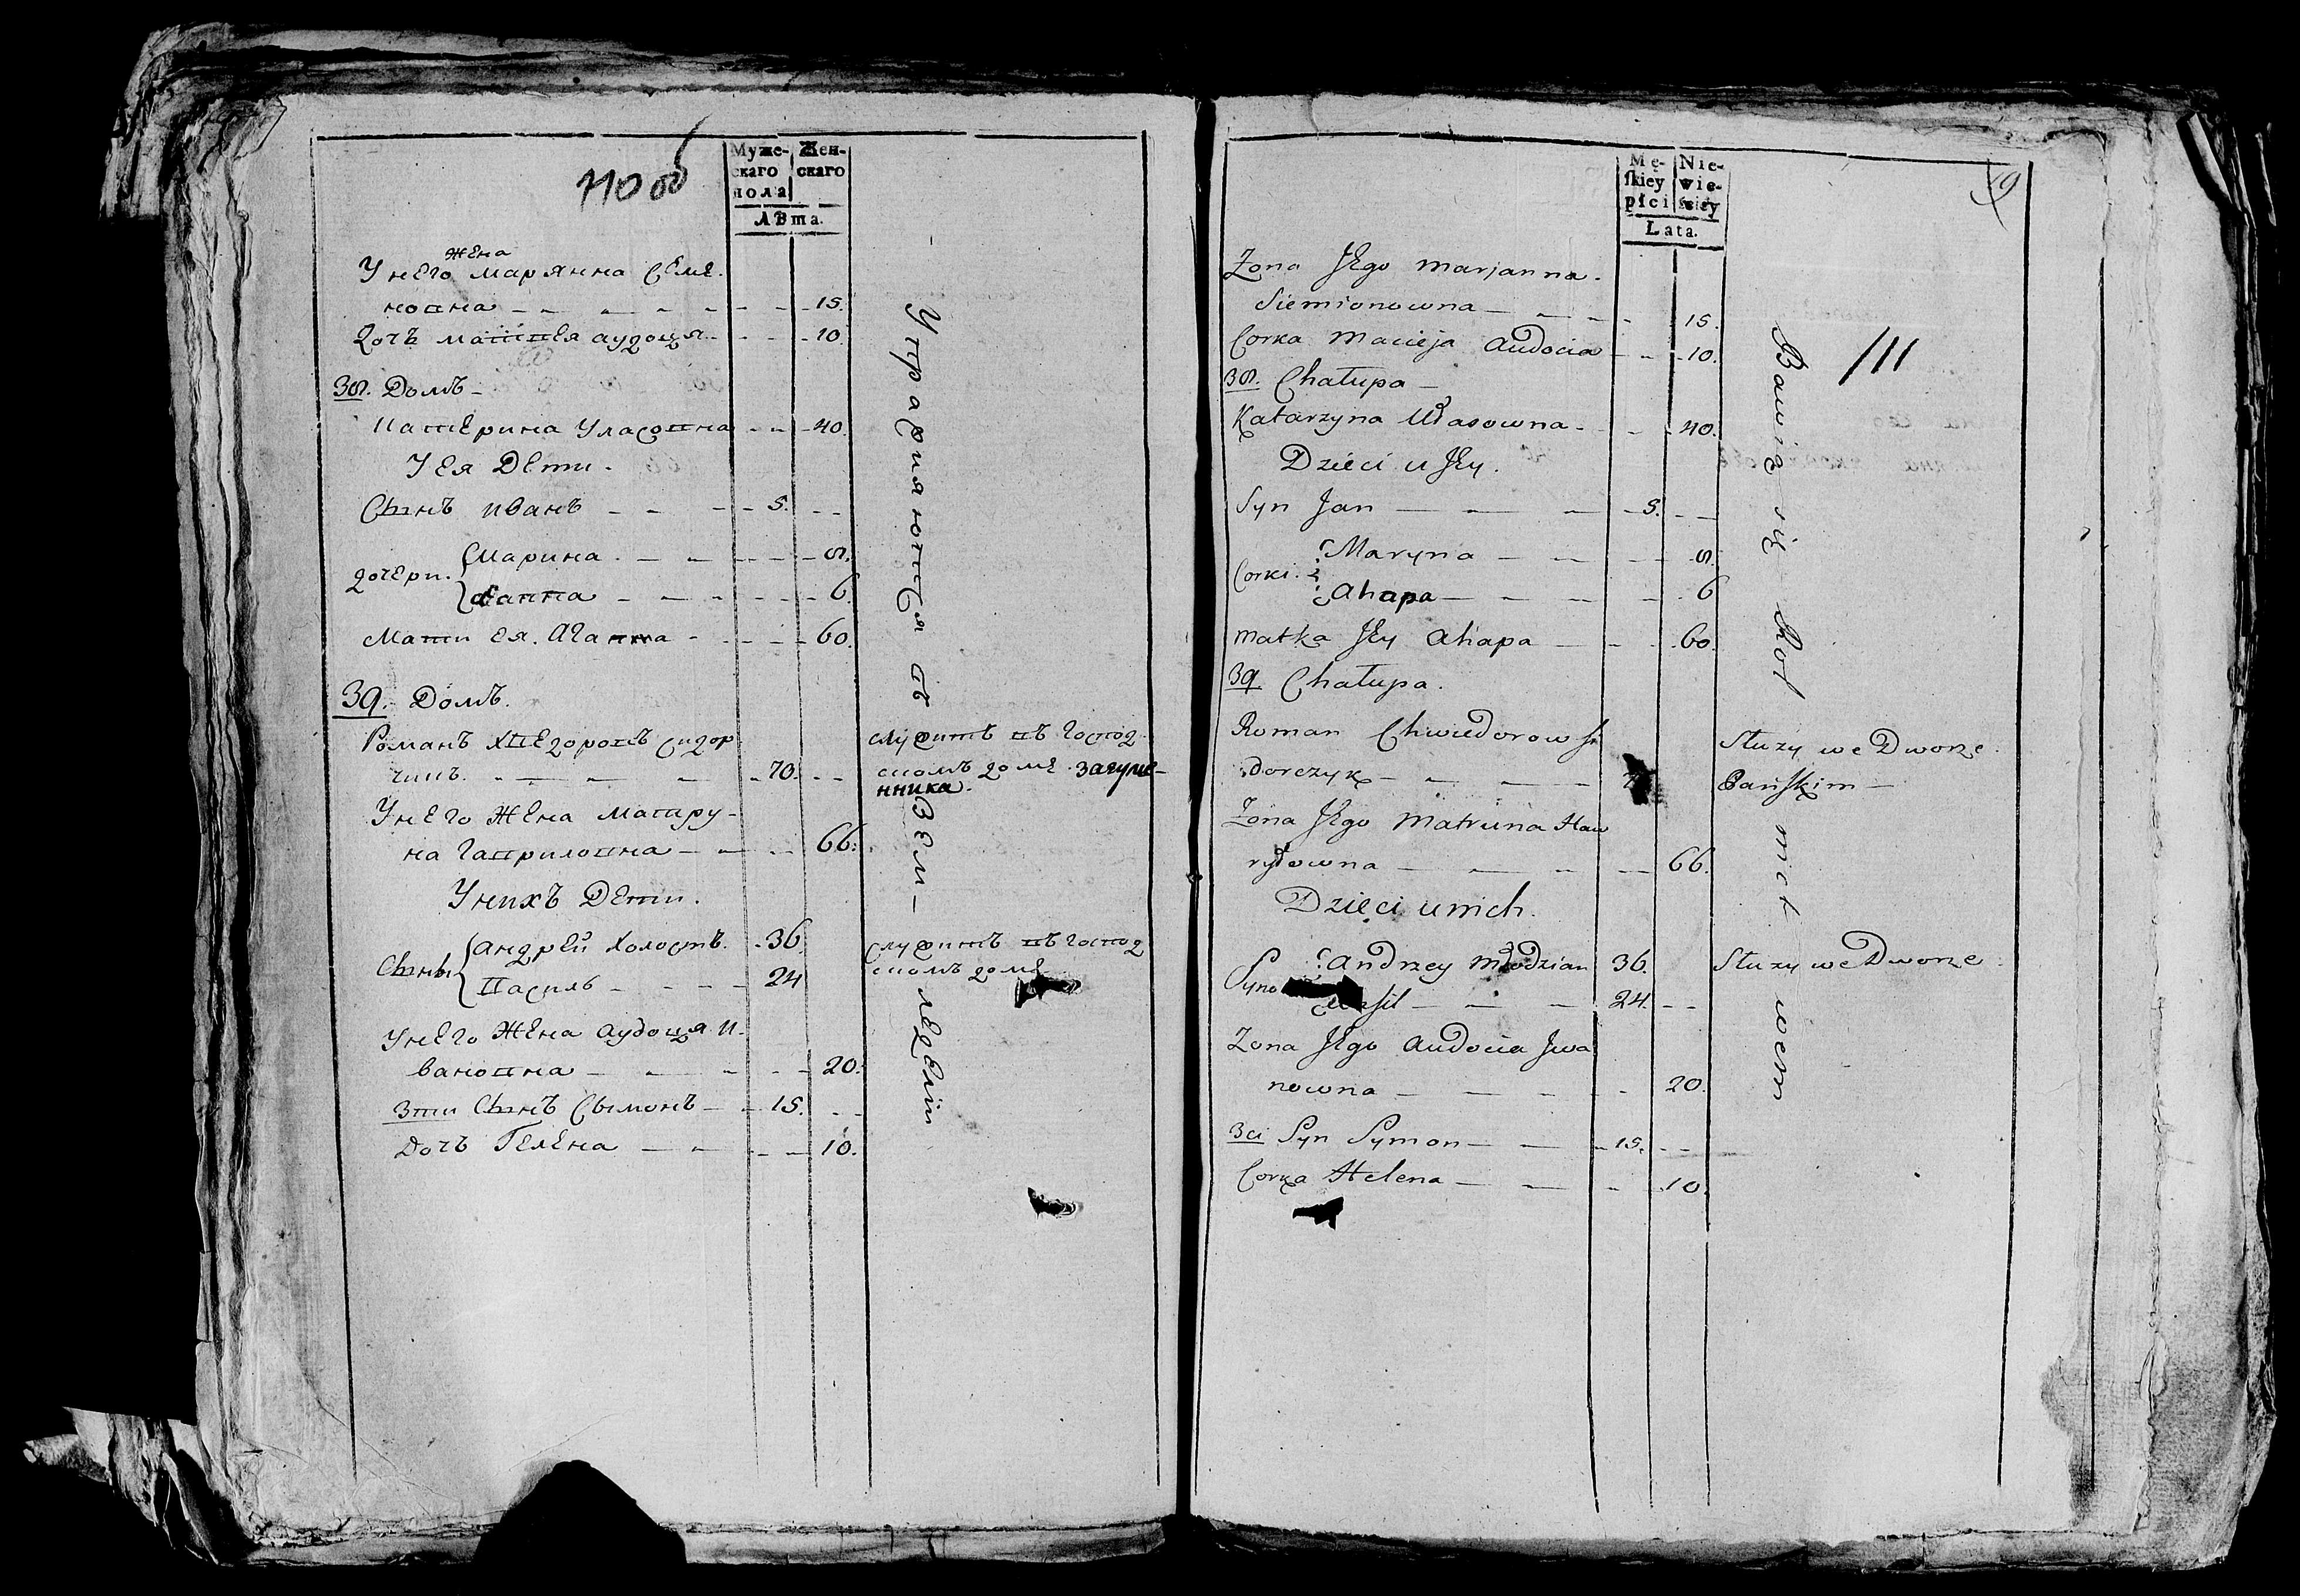 110 об
Муже-
скаго
пола
Жен-
скаго
Лѣта.
жена
У него Марянна Семе-
новна 15.
Дочь Матвея Аудоця 10.
38. Домъ
Катерина Уласовна 40.
У ея Дети.
Сынъ Иванъ 5.
дочери. Марина 8.
6.
Мати ея. Агапа 60.
39. Домъ.
Романъ Хведоровъ Сидор
чикъ. 70.
У него Жена Матру-
на Гавриловна 66.
У нихъ Дети.
Сыны Андрей холостъ. 36.
Василь 24
У него Жена Аудоця И-
вановна 20.
3тий Сынъ Сымонъ 15.
Дочь Гелена 10.
Упражняются въ Зем-ледел­ии
служитъ въ господ
скомъ доме. загуме-
нника.
служитъ въ господ
скомъ доме
Mę-
ſkiey
płci
Nie-
wie-
ściey
Lata.
19
111
Zona Jego Marjanna
Siemionowna 15.
Corka Macieja Audocia 10.
38. Chałupa
Katarzyna Ułasowna 40.
Dzieci u Jey.
Syn Jan 5.
Corki. Maryna 8.
Ahapa 6
Matka Jey Ahapa 60.
39. Chałupa.
Roman Chwiedorow Si
dorczyk
Zona Jego Matruna Haw
ryłowna 66.
Dzieci u nich.
Andrzey Młodzian 36.
24.
Zona Jego Audocia Iwa
nowna 20.
3ci Syn Symon 15.
Corka Helena 10.
Bawią się Rol nict wem
Służy we Dworze
Pańskim
Służy we Dworze